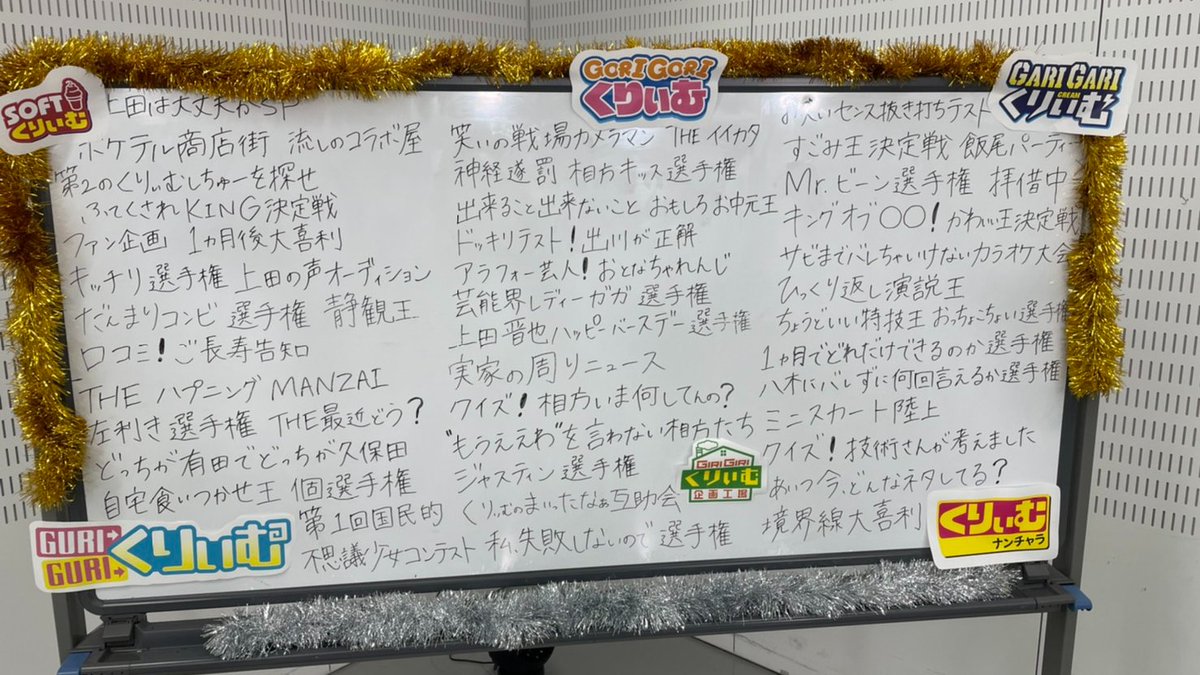 SOFT くりぃむ
GORI GORI くりぃむ
GARI GARI CREAM くりぃむ
上田は大丈夫かSP
ホケテル商店街 流しのコラボ屋
第2のくりぃむしちゅーを探せ
ふてくされKING決定戦
ファン企画 1ヵ月後大喜利
キッチリ選手権 上田の声オーディション
だんまりコンビ選手権 静観王
口コミ!ご長寿告知
THE ハプニング MANZAI
左利き選手権 THE最近どう?
どっちが有田でどっちが久保田
自宅食いつかせ王 個選手権
第1回国民的
不思議少女コンテスト
笑いの戦場カメラマン THE イイカタ
神経遂罰 相方キッス選手権
出来ること出来ないこと おもしろお中元王
ドッキリテスト!出川が正解
アラフォー芸人!おとなちゃれんじ
芸能界レディーガガ選手権
上田晋也ハッピーバースデー選手権
実家の周りニュース
クイズ!相方いま何してんの?
"もうええわ"を言わない相方たち
ジャスティン選手権
くりぃむのまいったなぁ互助会
私、失敗しないので選手権
センス抜き打ちテスト
すごみ王決定戦 飯尾パーティー
Mr.ビーン選手権 拝借中
キングオブ〇〇!かわいい王決定戦
サビまでバレちゃいけないカラオケ大会
ひっくり返し演説王
ちょうどいい特技王 おっちょこちょい選手権
1ヵ月でどれだけできるのか選手権
八木にバレずに何回言えるか選手権
ミニスカート陸上
クイズ!技術さんが考えました
あいつ今、どんなネタしてる?
境界線大喜利
GURI→GURI→くりぃむ
GIRI GIRI くりぃむ 企画工場
くりぃむ ナンチャラ